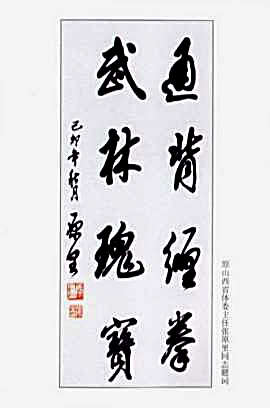 通背缠拳
武林瑰寶
己卯年秋月 原生
原山西省体委主任张原生同志题词